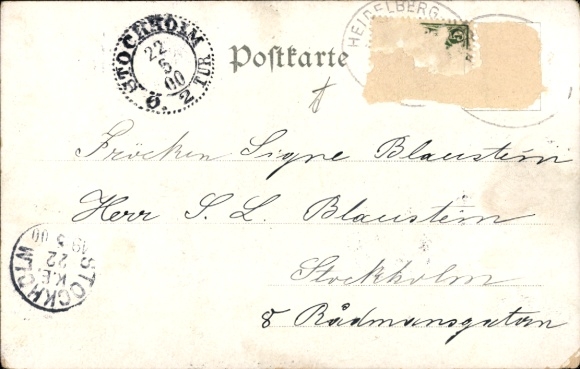 STOCKHOLM
22
5
00
Ö. 2 TUR.
Postkarte
HEIDELBERG
Fröcken Signe Blaustein
Herr S. L. Blaustein
Stockholm
8 Rådmansgatan
STOCKHOLM
K.E.
22
5 00